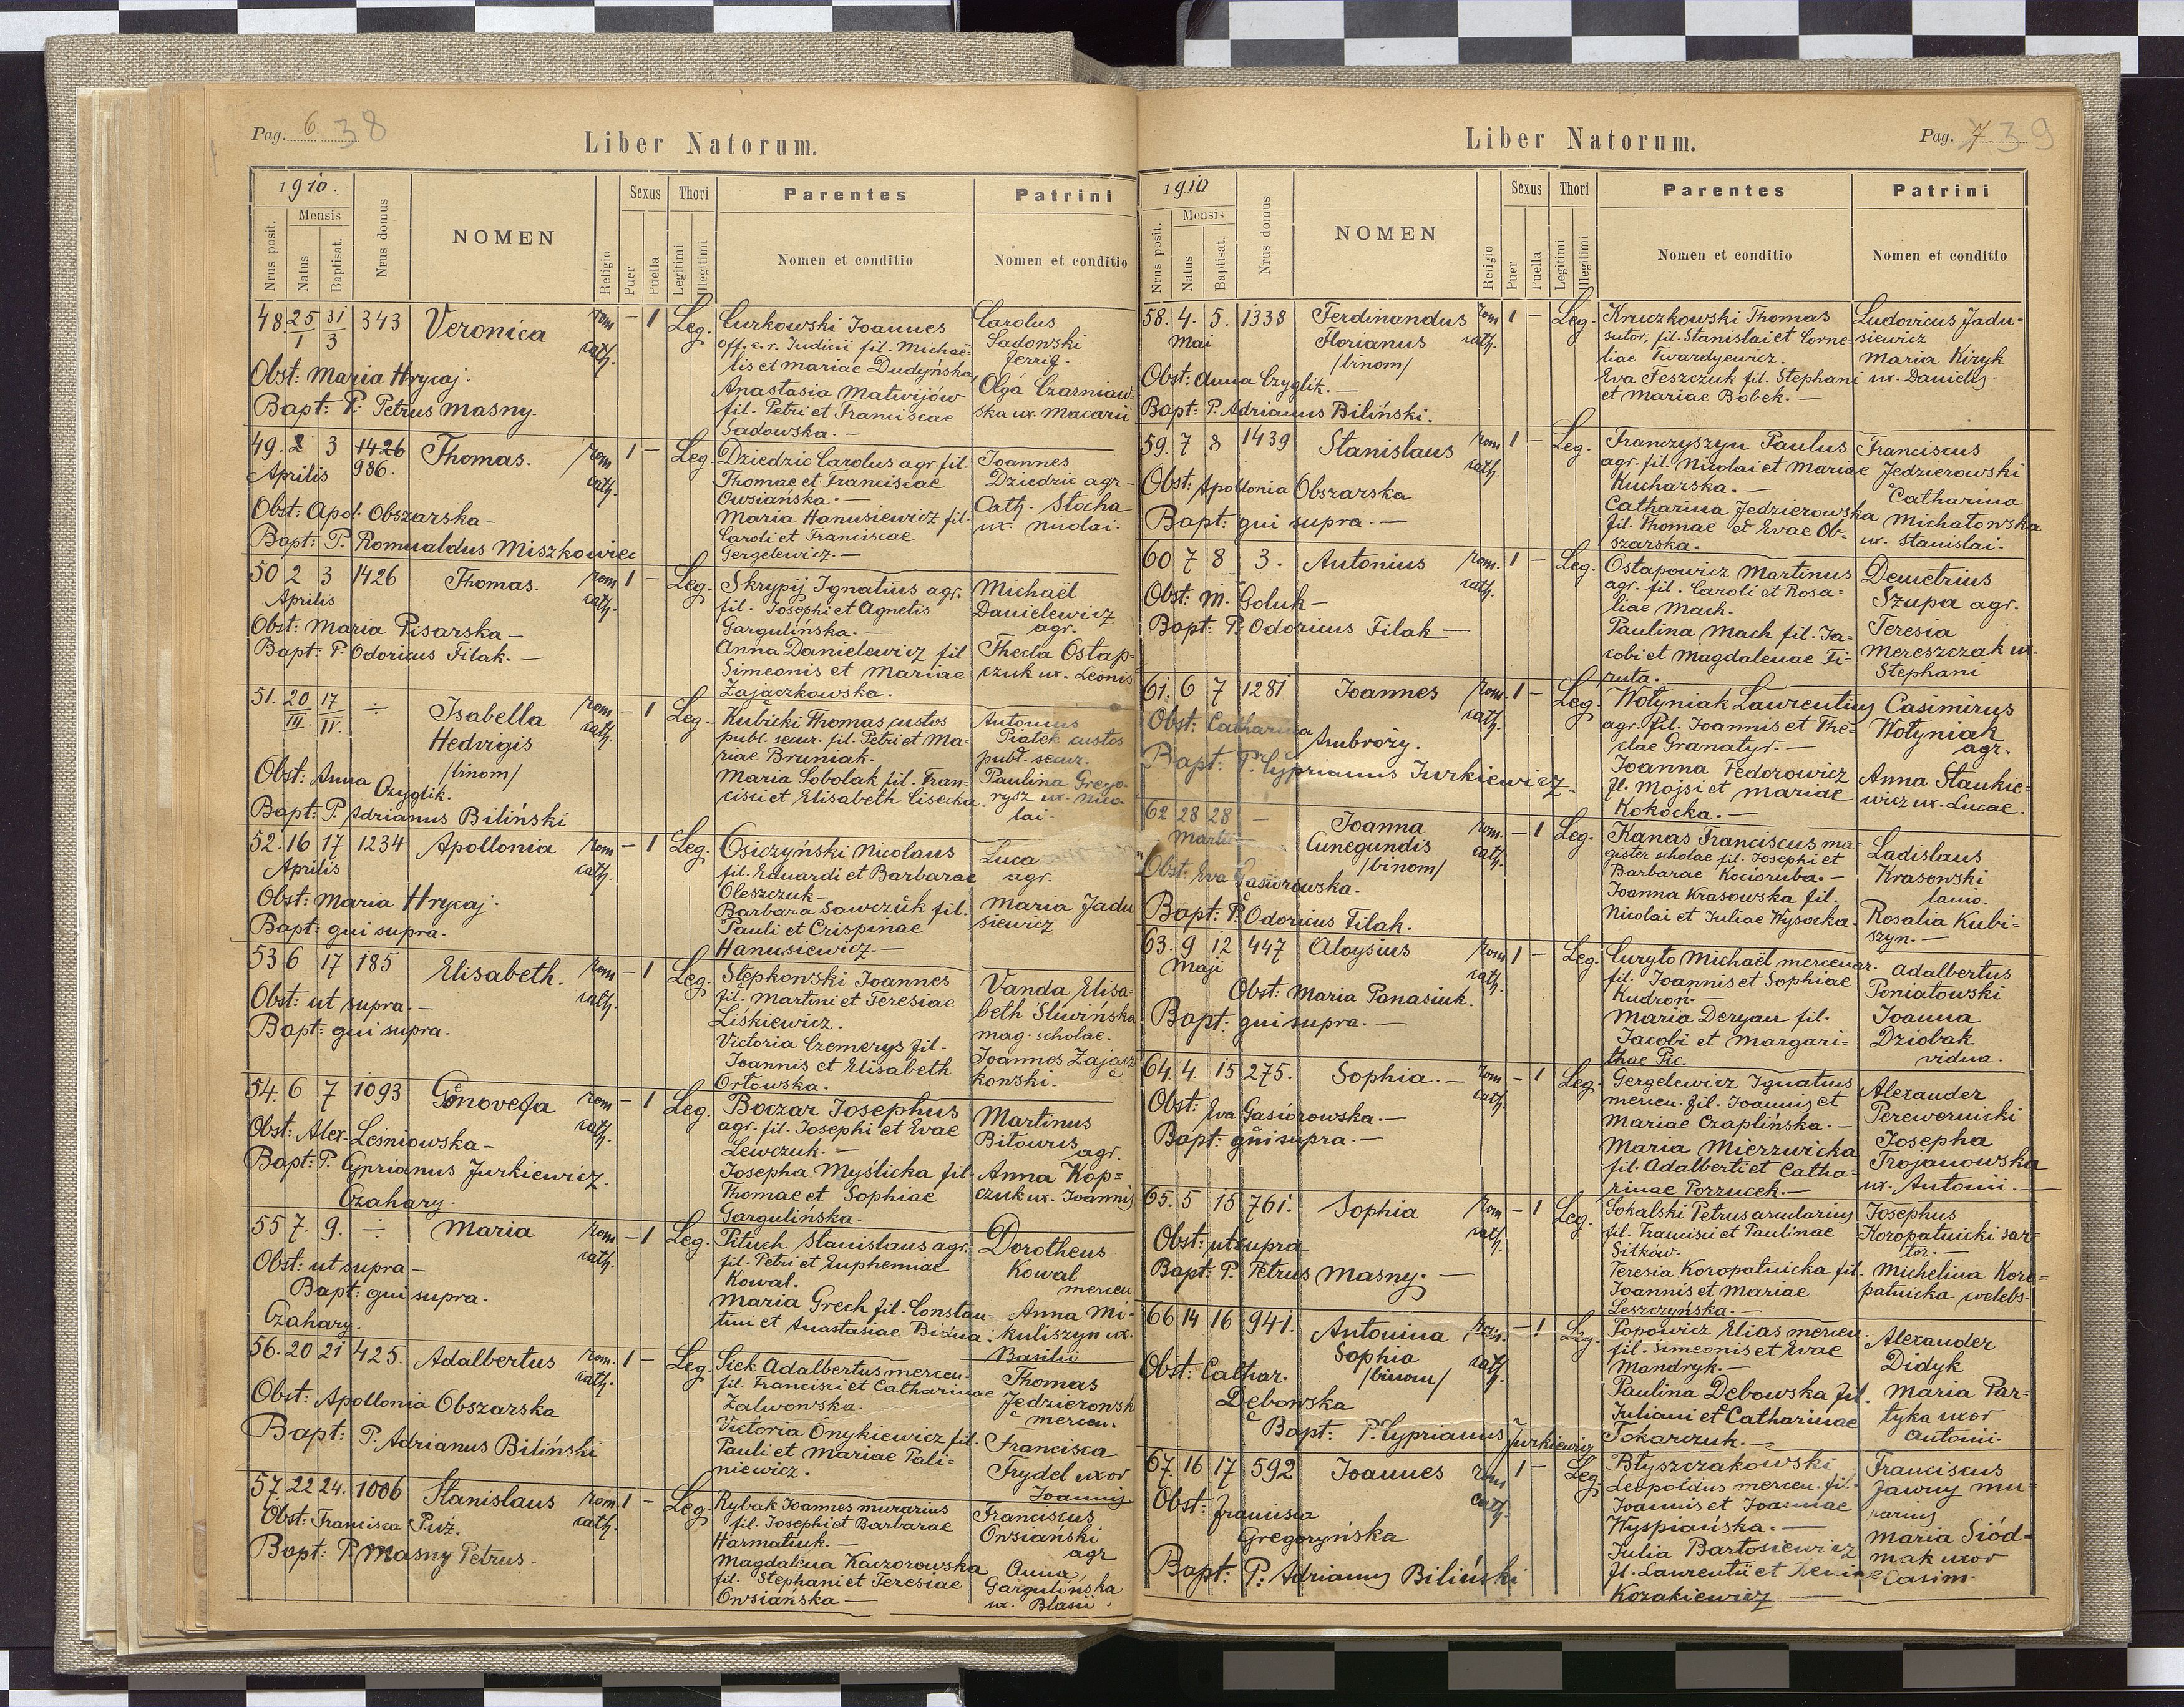 Pag. 6 38
Liber Natorum.
1910.
Nrus posit.
Mensis
Natus
Baptisat.
Nrus domus
NOMEN
Religio
Sexus
Puer
Puella
Thori
Legitimi
Illegitimi
Parentes
Nomen et conditio
Patrini
Nomen et conditio
48. 25/1 31/3 343 Veronica rom cath. – 1 Leg.
Obst: Maria Hrycaj.
Bapt: P. Petrus Masny.
Curkowski Joannes
off. c. r. Judicii fil. Michaë-
lis et Mariae Dudyńska,
Anastasia Matwijów
fil. Petri et Franciscae
Sadowska. –
Carolus
Sadowski
Olga Czarniaw-
ska ux. Macarii
49. 2 3 1426 Thomas. rom cath. 1 – Leg.
Aprilis 986.
Obst: Apol. Obszarska –
Bapt: P. Romualdus Miszkowiec
Dziedzic Carolus agr. fil.
Thomae et Franciscae
Owsiańska. –
Maria Hanusiewicz fil.
Caroli et Franciscae
Gergelewicz. –
Joannes
Dziedzic agr –
Cath. Stocha
ux. Nicolai.
50 2 3 1426 Thomas. rom cath. 1 – Leg.
Aprilis
Obst: Maria Pisarska –
Bapt: P. Odoricus Filak. –
Skrypij Ignatius agr.
fil. Josephi et Agnetis
Gargulińska. –
Anna Danielewicz fil
Simeonis et Mariae
Zajączkowska.
Michaël
Danielewicz
agr.
Thecla Ostap-
czuk ux. Leonis
51. 20/III. 17/IV. ÷ Isabella rom cath. – 1 Leg.
Hedvigis
/binom/
Obst: Anna Czyglik.
Bapt: P. Adrianus Biliński
Kubicki Thomas custos
publ. secur. fil. Petri et Ma-
riae Bruniak.
Maria Sobolak fil. Fran-
cisci et Elisabeth Cisecka.
Antonius
Piątek custos
publ. secur.
Paulina Grego-
rysz ux. Nico-
lai.
52. 16 17 1234 Apollonia rom cath. – 1 Leg.
Aprilis
Obst: Maria Hrycaj.
Bapt: qui supra.
Osiczyński Nicolaus
fil. Eduardi et Barbarae
Oleszczuk –
Barbara Sawczuk fil.
Pauli et Crispinae
Hanusiewicz. –
Luca
agr.
Maria Jadu
siewicz
53 6 17 185 Elisabeth. rom cath. – 1 Leg.
Obst: ut supra. –
Bapt: qui supra.
Stepkowski Joannes
fil. Martini et Teresiae
Liśkiewicz.
Victoria Czemerys fil.
Joannis et Elisabeth
Orłowska.
Vanda Elisa-
beth Śliwińska
mag. scholae.
Joannes Zającz
kowski.
54. 6 7 1093 Genovefa rom cath. – 1 Leg.
Obst: Alex. Leśniowska –
Bapt: P. Cyprianus Jurkiewicz.
Czahary.
Boczar Josephus
agr. fil. Josephi et Evae
Lewczuk. –
Josepha Myślicka fil.
Thomae et Sophiae
Gargulińska.
Martinus
Bitowus
agr.
Anna Kop-
czuk ux. Joannis
55 7. 9. ÷ Maria rom cath. – 1 Leg.
Obst: ut supra –
Bapt: qui supra.
Czahary.
Pituch Stanislaus agr.
fil. Petri et Euphemiae
Kowal.
Maria Grech fil. Constan-
tini et Anastasiae Biduа.
Dorotheus
Kowal
mercen.
Anna Mi-
kuliszyn ux.
Basilii
56. 20 21 425. Adalbertus rom. cath. 1 – Leg.
Obst: Apollonia Obszarska
Bapt: P. Adrianus Biliński
Siek Adalbertus mercen.
fil. Francisci et Catharinae
Zalwowska.
Victoria Onykiewicz fil.
Pauli et Mariae Pali-
niewicz.
Thomas
Jędzierowsk
mercen.
Francisca
Frydel uxor
Joannis
57. 22 24. 1006 Stanislaus rom. cath. 1 – Leg.
Obst: Francisca Puż.
Bapt: P. Masny Petrus.
Rybak Joannes murarius
fil. Josephi et Barbarae
Harmatiuk. –
Magdalena Kaczorowska
fil. Stephani et Teresiae
Owsiańska –
Franciscus
Owsiański
agr
Anna
Gargulińska
ux. Blasii.
Liber Natorum.
Pag. 7 39
1910
Nrus posit.
Mensis
Natus
Baptisat.
Nrus domus
NOMEN
Religio
Sexus
Puer
Puella
Thori
Legitimi
Illegitimi
Parentes
Nomen et conditio
Patrini
Nomen et conditio
58. 4. 5. 1338 Ferdinandus rom cath. 1 – Leg.
Mai Florianus
/binom/
Obst: Anna Czyglik. –
Bapt: P. Adrianus Biliński.
Kruczkowski Thomas
sutor, fil. Stanislai et Corne-
liae Twardyewicz.
Eva Feszczuk fil. Stephani
et Mariae Bobek. –
Ludovicus Jadu-
siewicz
Maria Kiryk
ux. Danielis.
59. 7 8 1439 Stanislaus rom cath. 1 – Leg.
Obst: Apollonia Obszarska
Bapt: qui supra. –
Franczyszyn Paulus
agr. fil. Nicolai et Mariae
Kucharska. –
Catharina Jędzierowska
fil. Thomae et Evae Ob-
szarska. –
Franciscus
Jedzierowski
Catharina
Michałowska
ux. Stanislai.
60 7 8 3. Antonius rom. cath. 1 – Leg.
Obst: M. Goluk –
Bapt: P. Odoricus Filak –
Ostapowicz Martinus
agr. fil. Caroli et Rosa-
liae Mach.
Paulina Mach fil. Ja-
cobi et Magdalenae Fi-
ruta. –
Demetrius
Szupa agr.
Teresia
Mereszczak ux.
Stephani
61. 6 7 1281 Joannes rom. cath. 1 – Leg.
Obst: Catharina
Ambroży.
Bapt: P. Cyprianus Jurkiewicz –
Wołyniak Laurentius
agr. fil. Joannis et The-
clae Granatyr. –
Joanna Fedorowicz
fl. Mojsi et Mariae
Kokocka. –
Casimirus
Wołyniak
agr.
Anna Stankie-
wicz ux. Lucae.
62 28 28 – Joanna rom. cath. – 1 Leg.
Martii Cunegundis
/binom/
Obst: Eva Gąsiorowska.
Bapt: P. Odoricus Filak.
Kanas Franciscus ma-
gister scholae fil. Josephi et
Barbarae Kocioruba. –
Joanna Krasowska fil.
Nicolai et Juliae Wysocka.
Ladislaus
Krasowski
lanio.
Rosalia Kubi-
szyn. –
63. 9 12 447 Aloysius rom cath. 1 – Leg.
Maji
Obst: Maria Panasiuk.
Bapt: qui supra. –
Curyło Michaël mercenar.
fil. Joannis et Sophiae
Kudroń. –
Maria Deryau fil.
Jacobi et Margari-
thae Pic.
Adalbertus
Poniatowski
Joanna
Dziobak
vidua.
64. 4. 15 275. Sophia. – rom cath. – 1 Leg.
Obst: Eva Gąsiorowska. –
Bapt: qui supra. –
Gergelewicz Ignatius
mercen. fil. Joannis et
Mariae Czaplińska. –
Maria Mierzwicka
fil. Adalberti et Catha-
rinae Porzucek. –
Alexander
Perewernicki
Josepha
Trojanowska
ux. Antonii. –
65. 5 15 761. Sophia rom cath. – 1 Leg.
Obst: ut supra
Bapt: P. Petrus Masny. –
Sokalski Petrus arcularius
fil. Francisci et Paulinae
Sitków.
Teresia Koropatnicka fil.
Joannis et Mariae
Leszczyńska. –
Josephus
Koropatnicki sar-
tor. –
Michelina Koro-
patnicka welebs.
66 14 16 941. Antonina rom. cath. – 1 Leg.
Sophia
/binom/
Obst: Cathar.
Dębowska
Bapt: P. Cyprianus Jurkiewicz
Popowicz Elias mercen.
fil. Simeonis et Evae
Mandryk. –
Paulina Dębowska fil.
Juliani et Catharinae
Tokarczuk. –
Alexander
Didyk
Maria Par-
tyka uxor
Antonii.
67. 16 17 592 Joannes rom cath. 1 – Leg.
Obst: Francisca
Gregoryńska
Bapt: P. Adrianus Biliński
Błyszczakowski
Leopoldus mercen. fil.
Joannis et Joannae
Wyspiańska. –
Julia Bartosiewicz
fl. Laurentii et
Kozakiewicz –
Franciscus
Jawny mu-
rarius
Maria Siód-
mak uxor
Casim.